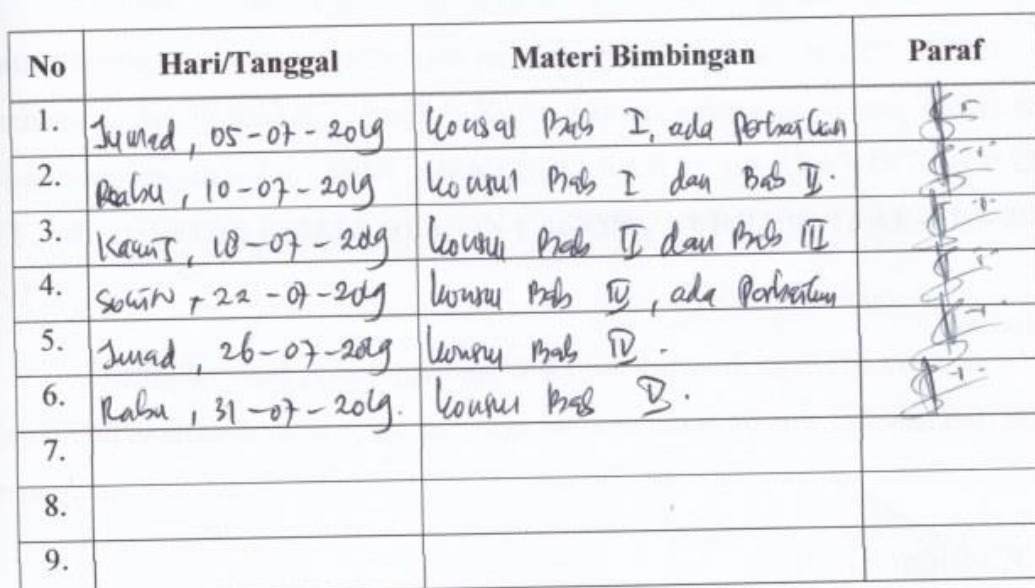 No Hari/Tanggal Materi Bimbingan Paraf
1. Jumad, 05-07-2019 Konsul Bab I, ada Perbaikan
2. Rabu, 10-07-2019 Konsul Bab I dan Bab II.
3. Kamis, 18-07-2019 Konsul Bab II dan Bab III
4. Senin, 22-07-2019 Konsul Bab IV, ada Perbaikan
5. Jumad, 26-07-2019 Konsul Bab IV.
6. Rabu, 31-07-2019. Konsul Bab V.
7.
8.
9.